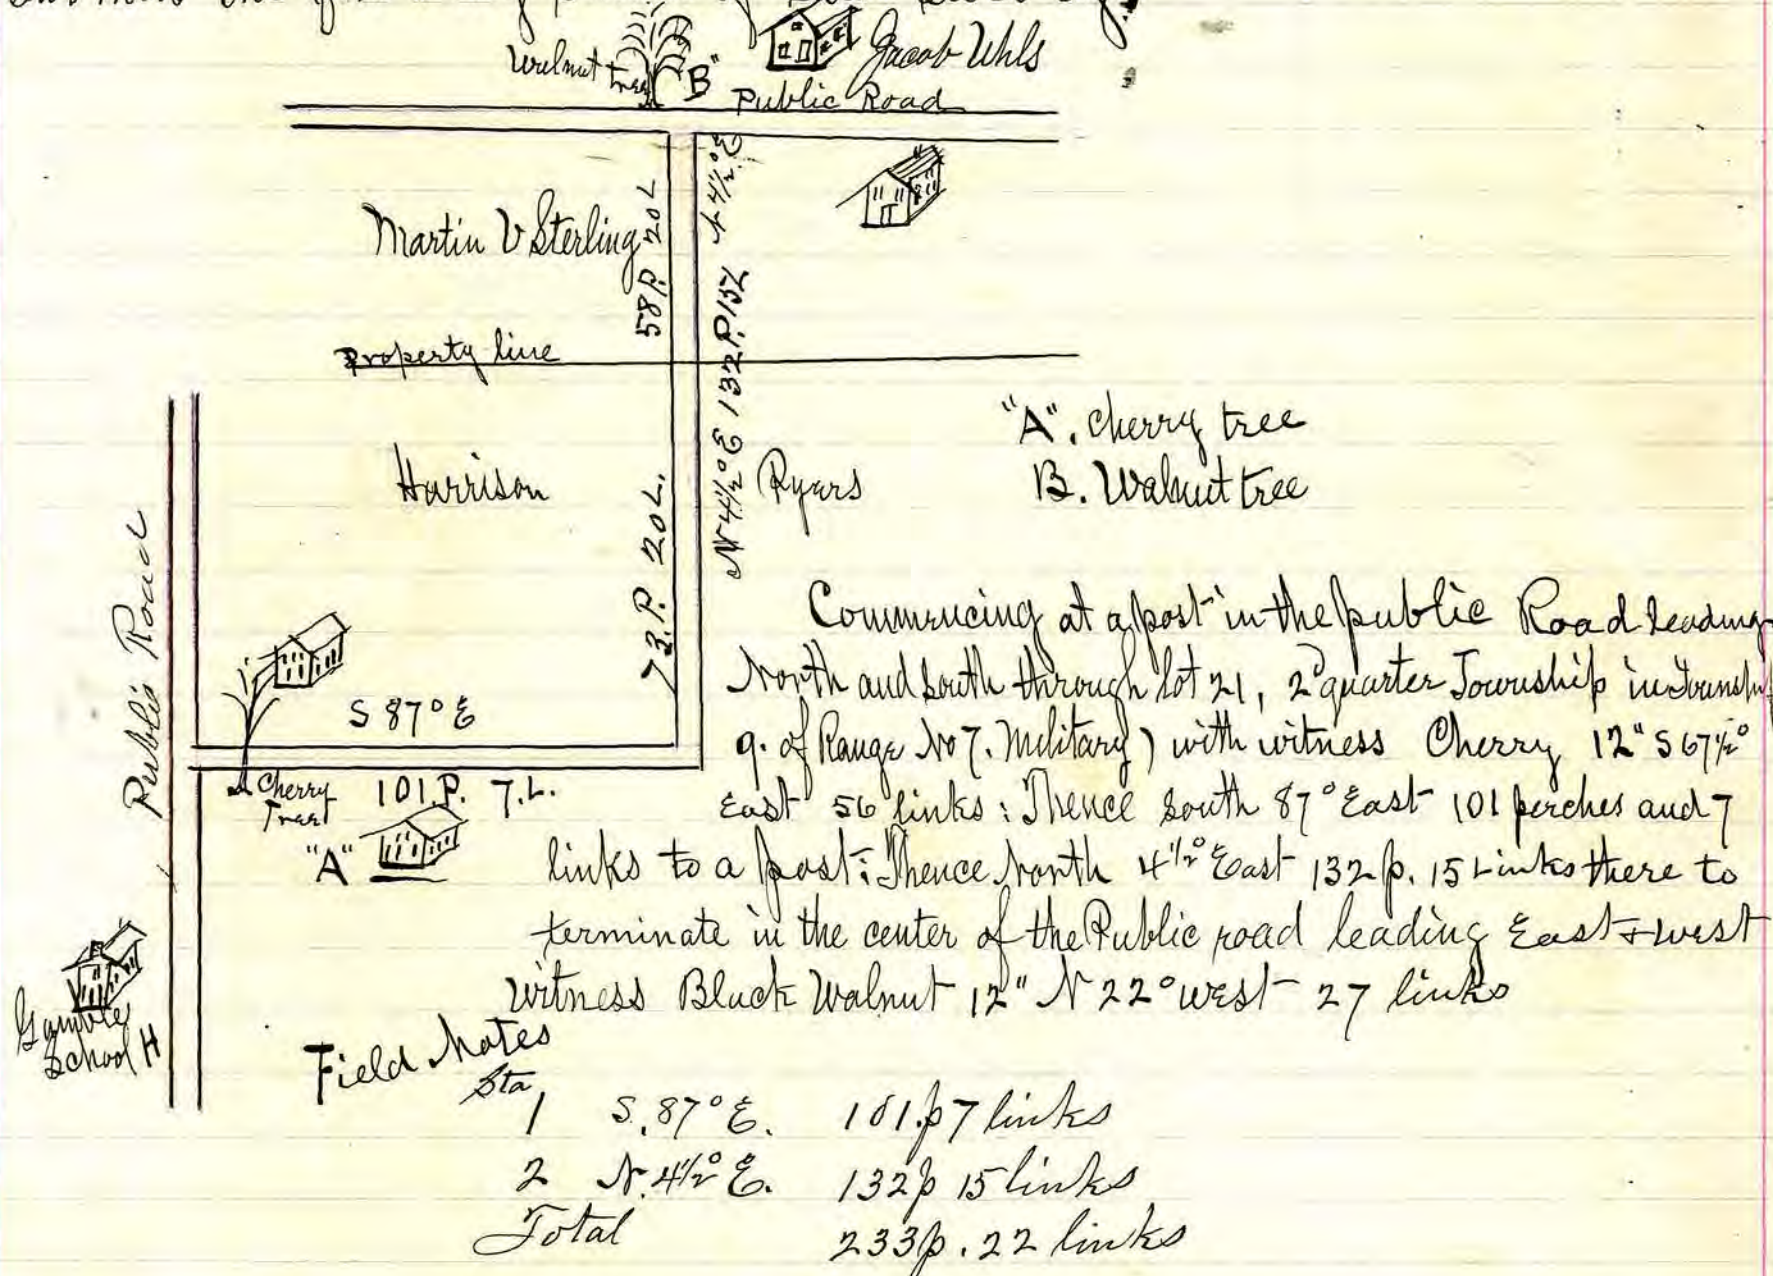 Walnut tree "B" Jacob Uhls
Public Road
Martin V Sterling
58 P. 20 L
N 4½° E
N 4½° E 132 P. 15 L
Property line
"A". Cherry tree
B. Walnut tree
Harrison
Ryars
73. P. 20 L.
Public Road
S 87° E
Cherry Tree
101. P. 7. L.
"A"
School H
Commencing at a post in the public Road leading
North and South through lot 21, 2 quarter Township in
9. of Range No 7. Military) with witness Cherry 12" S 67½°
East 56 links : Thence South 87° East 101 perches and 7
links to a post : Thence North 4½° East 132 p. 15 Links there to
terminate in the center of the Public road leading East + west
witness Black Walnut 12" N 22° west 27 links
Field Notes
Sta
1 S. 87° E. 101. p 7 links
2 N. 4½° E. 132 p 15 links
Total 233 p. 22 links